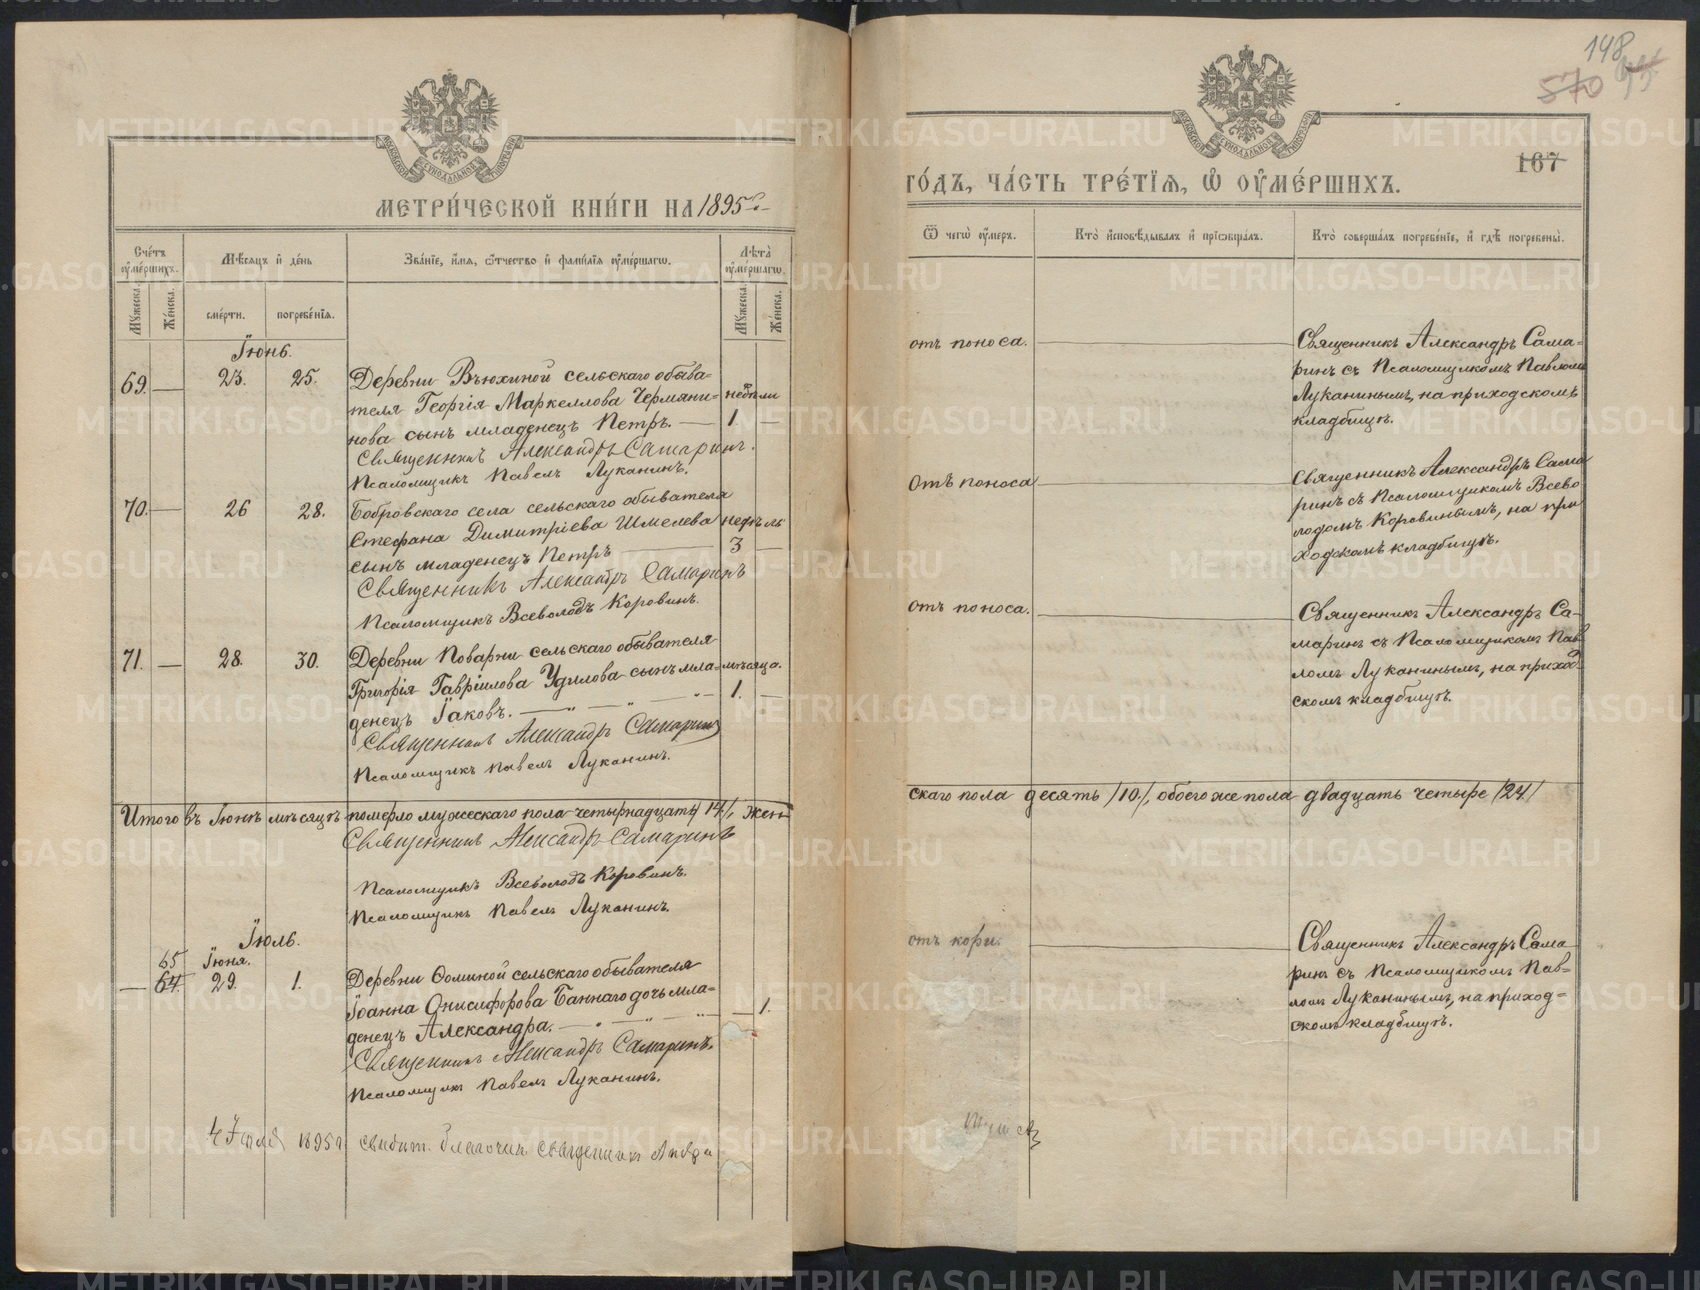 МЕТРИ́ЧЕСКОЙ КНИ́ГИ НА 1895 г.
Сче́тъ ᲂу҆ме́ршихъ.
Мѣ́сяцъ и҆ де́нь
Зва́нїе, и҆́мя, ѻ҆́тчество и҆ фами́лїя ᲂу҆ме́ршагѡ.
Лѣта̀ ᲂу҆ме́ршагѡ.
Мꙋ́жеска.
Же́нска.
сме́рти.
погребе́нїя.
Мꙋ́жеска.
Же́нска.
Іюнь.
69. — 23. 25. Деревни Вьюхиной сельскаго обыва-
теля Георгія Маркеллова Чермяни- недѣли
нова сынъ младенецъ Петръ. — 1. —
Священникъ Александръ Самаринъ.
Псаломщикъ Павелъ Луканинъ.
70. — 26 28. Бобровскаго села сельскаго обывателя
Стефана Димитріева Шмелева недѣль
сынъ младенецъ Петръ — 3 —
Священникъ Александръ Самаринъ
Псаломщикъ Всеволодъ Коровинъ.
71. — 28. 30. Деревни Поварни сельскаго обывателя
Григорія Гавріилова Удилова сынъ мла- мѣсяца.
денецъ Іаковъ. — 1. —
Священникъ Александръ Самаринъ
Псаломщикъ Павелъ Луканинъ.
Итого въ Іюнѣ мѣсяцѣ померло мужескаго пола четырнадцать /14/, жен-
Священникъ Александръ Самаринъ
Псаломщикъ Всеволодъ Коровинъ.
Псаломщикъ Павелъ Луканинъ.
Іюль.
65 Іюня.
— 64. 29. 1. Деревни Фоминой сельскаго обывателя
Іоанна Онисифорова Баннаго дочь мла-
денецъ Александра. — — 1.
Священникъ Александръ Самаринъ.
Псаломщикъ Павелъ Луканинъ.
4 Іюля 1895 г. свидѣт. благочин. священникъ
148
570
167
ГО́ДЪ, ЧА́СТЬ ТРЕ́ТЇѦ, Ѡ҆ ᲂУ҆МЕ́РШИХЪ.
Ѿ чегѡ̀ ᲂу҆́меръ.
Кто̀ и҆сповѣ́дывалъ и҆ прїѡбща́лъ.
Кто̀ соверша́лъ погребе́нїе, и҆ гдѣ̀ погребены̀.
отъ поноса. — Священникъ Александръ Сама-
ринъ съ Псаломщикомъ Павломъ
Луканинымъ, на приходскомъ
кладбищѣ.
Отъ поноса — Священникъ Александръ Сама
ринъ съ Псаломщикомъ Всево
лодомъ Коровинымъ, на при
ходскомъ кладбищѣ.
отъ поноса. — Священникъ Александръ Са-
маринъ съ Псаломщикомъ Пав
ломъ Луканинымъ, на приход-
скомъ кладбищѣ.
скаго пола десять /10./, обоего же пола двадцать четыре /24./
отъ кори. — Священникъ Александръ Сама
ринъ съ Псаломщикомъ Пав-
ломъ Луканинымъ, на приход-
скомъ кладбищѣ.